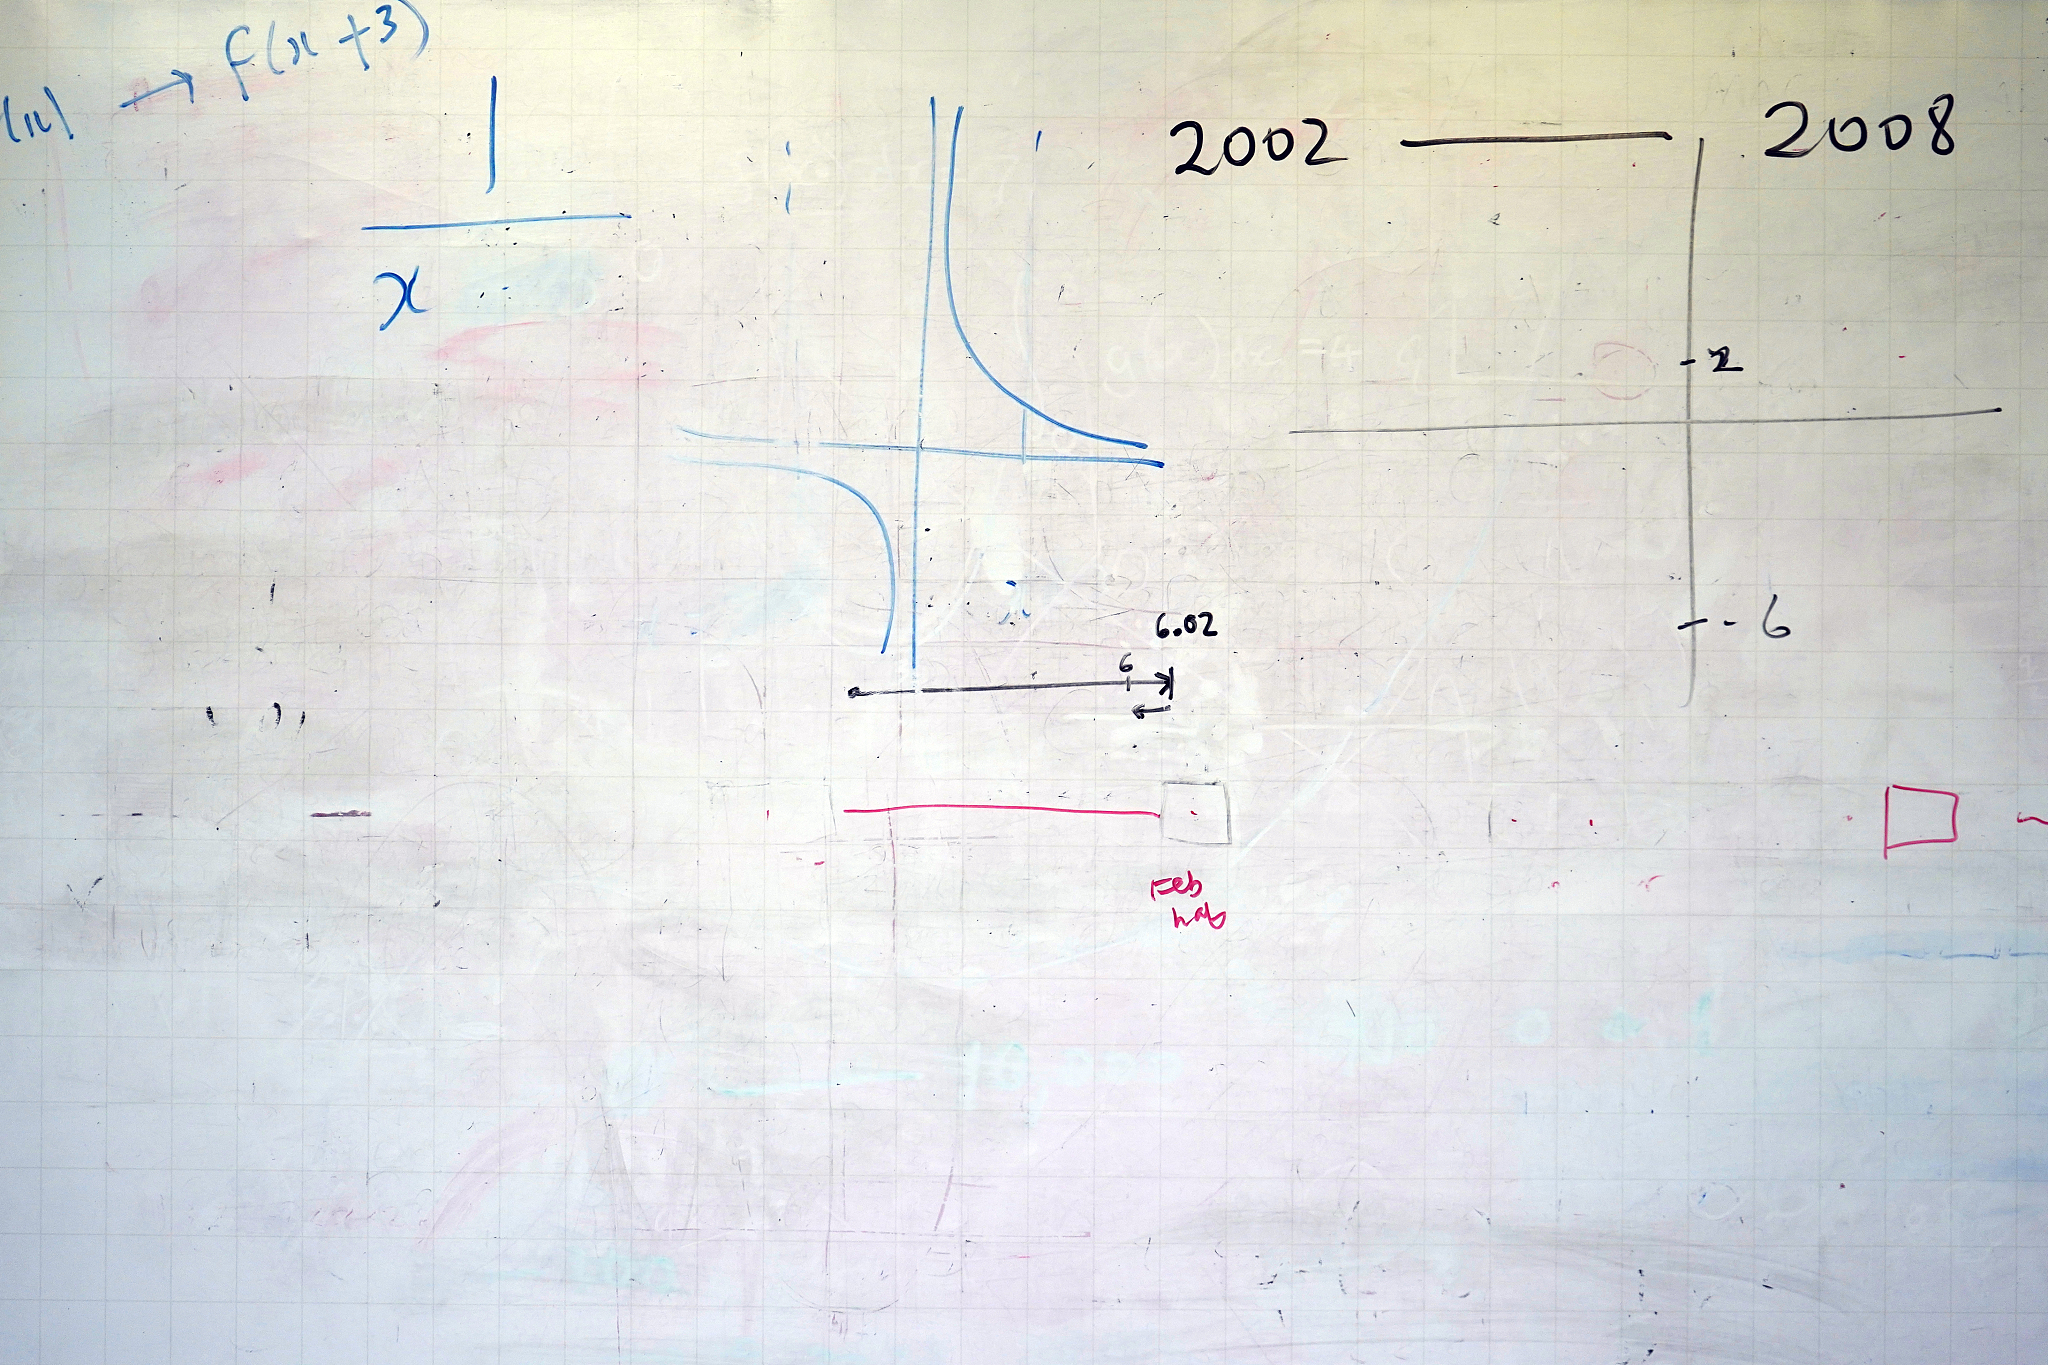 (x) → f(x+3)
1
x
2002 — 2008
2
-6
6.02
6
Feb